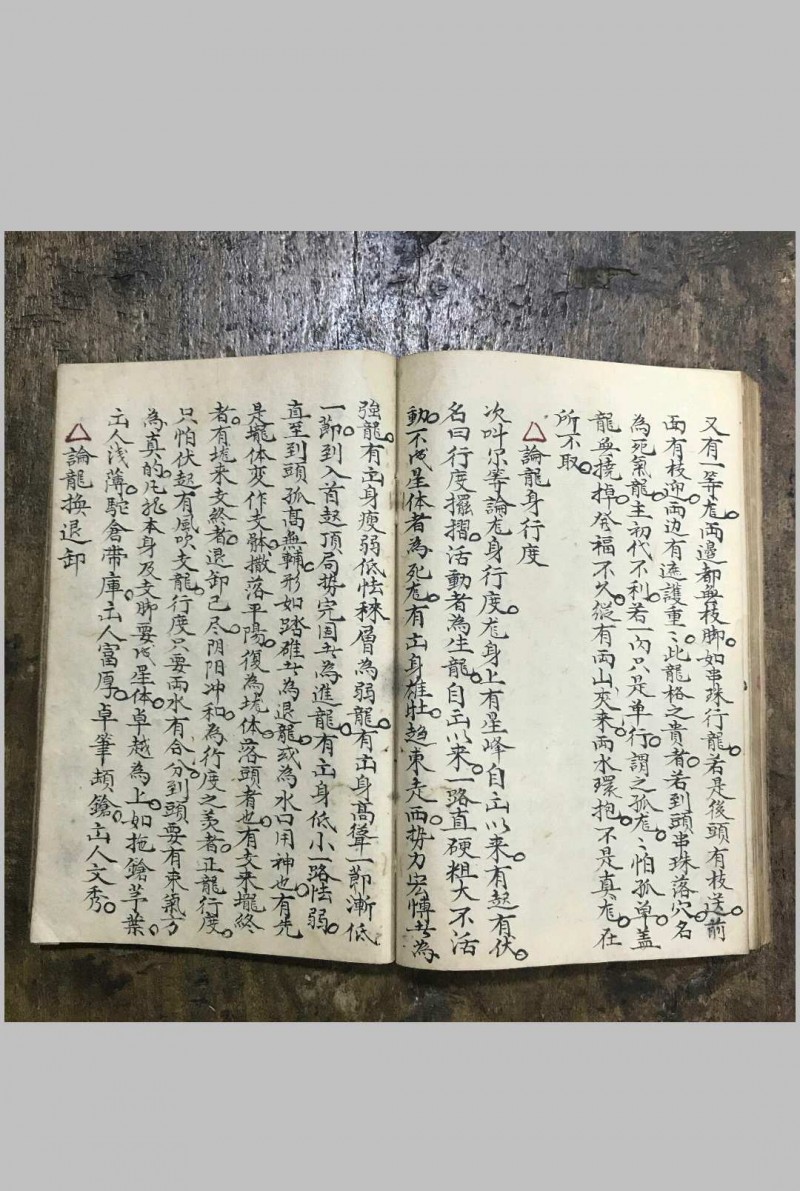 又有一等龙。両邉都無枝脚。如串珠行龍。若是後頭有枝送。前
面有枝迎。両边有遮護重〻。此龍格之貴者。若到頭串珠落穴。名
為死氣龍。主初代不利。若一內只是单行。謂之孤龙。〻怕孤单。盖
龍無撓掉。発福不久。従有両山夾来。両水環抱。不是真龙。在
所不取。
△論龍身行度
次呌尔等論龙身行度。龙身上有星峰。自出以来。有起有伏。
名曰行度。擺摺活動者為生龍。自出以来。一路直硬粗大不活
動。不成星体者為死龙。有出身雄壮。趋東走西。势力宏愽者為
強龍。有出身瘦弱。低怯踈層為弱龍。有出身高聳。一節漸低
一節。到入首起頂。局势完固者為進龍。有出身低小。一路怯弱。
直至到頭。孤高無輔。形如踏碓者為退龍。或為水口用神也。有先
是壠体。変作支骵。撒落平陽。復為垅体。落頭者也。有支来壠終
者。有垅来支終者。退卸已尽。阴阳冲和。為行度之美者。正龍行度。
只怕伏起有風吹。支龍行度。只要両水有合分。到頭要有束氣。方
為真的。凡龍本身及支脚。要成星体卓越為上。如拖鎗茅葉。
出人浅薄。駝倉帯庫。出人富厚。卓筆頓鎗。出人文秀。
△論龍換退卸